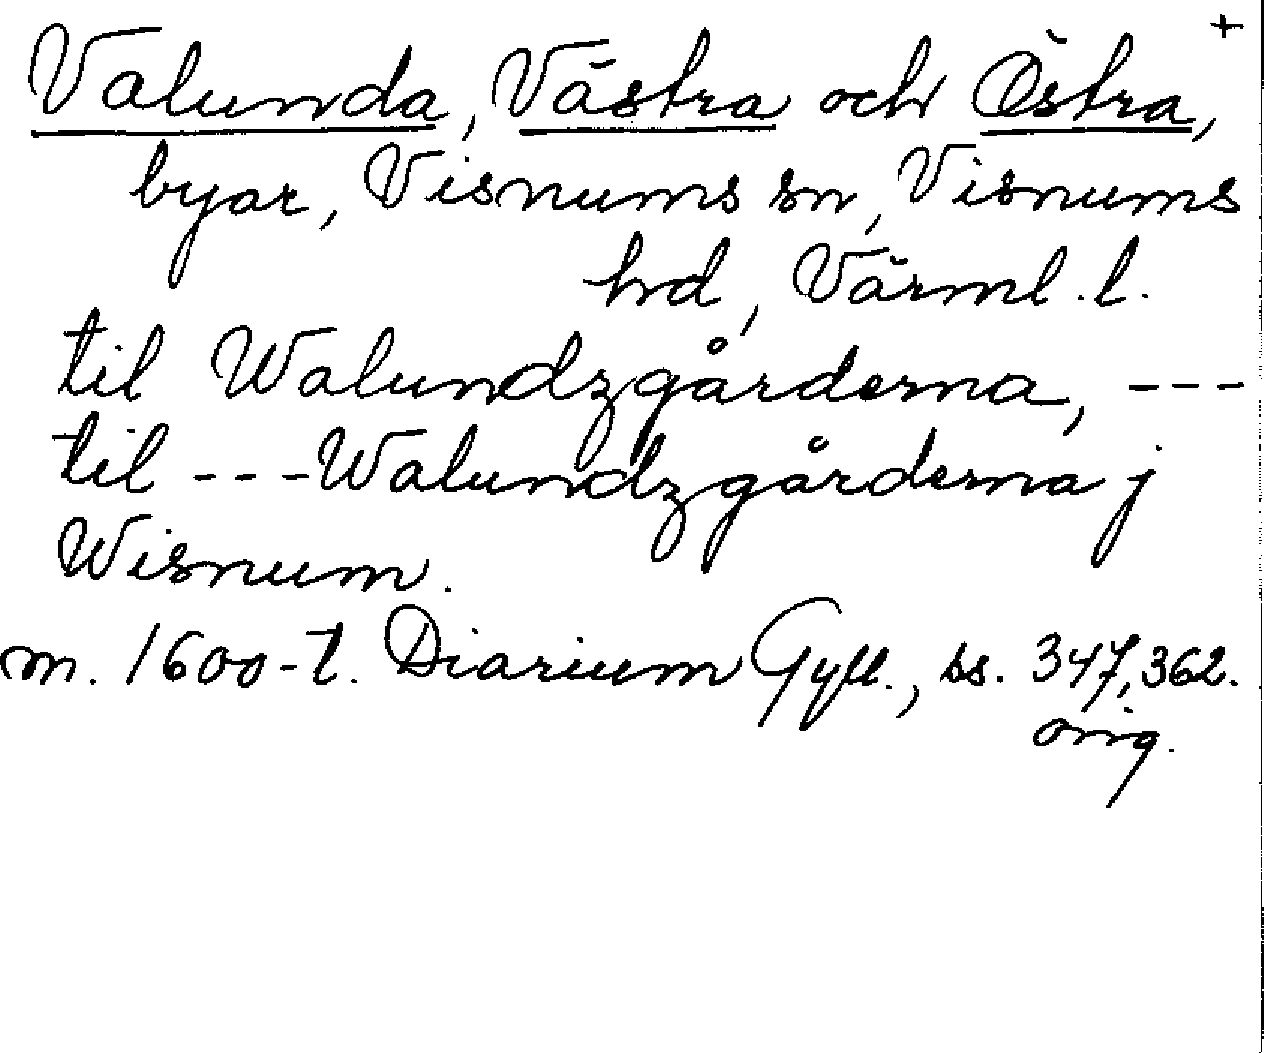 +
Valunda, Västra och Östra,
byar, Visnums sn, Visnums
hd, Värml. l.
til Walundzgårderna, ---
til --- Walundzgårderna j
Wisnum.
m. 1600-t. Diarium Gyll., ss. 347, 362.
orig.